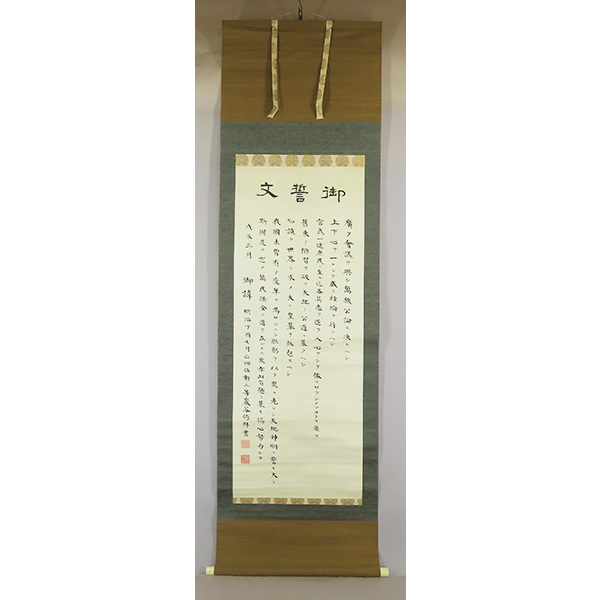 御誓文
廣ク會議ヲ興シ萬機公論ニ決スヘシ
上下心ヲ一ニシテ盛ニ經綸ヲ行フヘシ
官武一途庶民ニ至ル迄各其志ヲ遂ケ人心ヲシテ倦マサラシメンコトヲ要ス
舊來ノ陋習ヲ破リ天地ノ公道ニ基クヘシ
知識ヲ世界ニ求メ大ニ皇基ヲ振起スヘシ
我國未曾有ノ變革ヲ為ントシ朕躬ヲ以テ衆ニ先ンシ天地神明ニ誓ヒ大ニ
斯國是ヲ定メ萬民保全ノ道ヲ立ントス衆亦此旨趣ニ基キ協心努力セヨ
戊辰三月 御諱 明治丁酉七月正四位勳三等巖谷修拜書